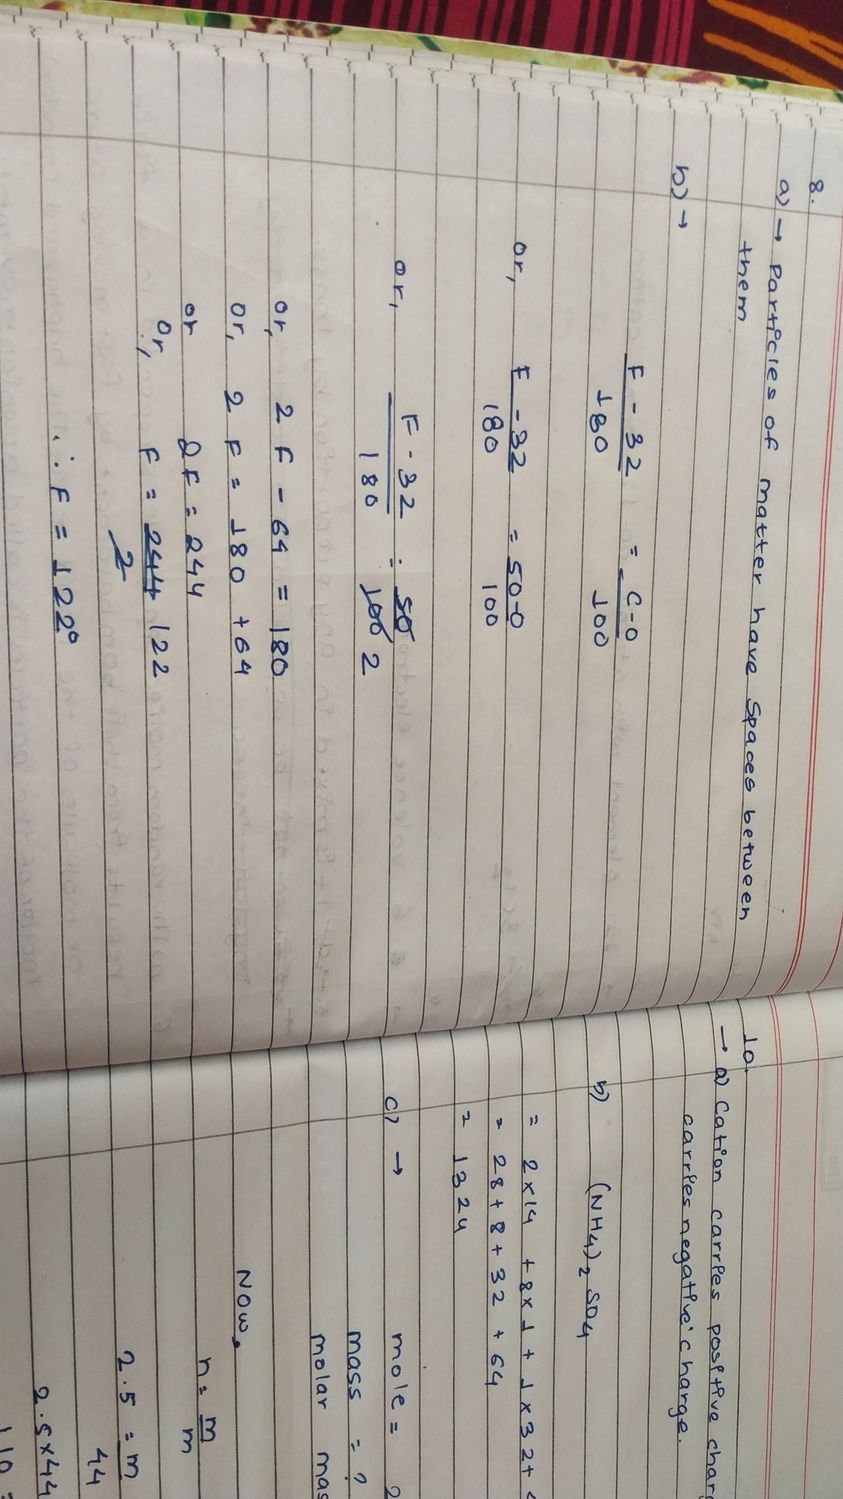 8.
a) → Particles of matter have spaces between
them
b) →
F - 32 / 180 = C-0 / 100
or, F - 32 / 180 = 50-0 / 100
or, F - 32 / 180 = 50 / 100 2
or, 2 F - 64 = 180
or, 2 F = 180 + 64
or 2F = 244
or, F = 244 / 2 122
∴ F = 122°
10.
→ a) Cation carries positive
carries negative charge.
b) (NH4)2 SO4
= 2×14 + 8×1 + 1×32+
= 28 + 8 + 32 + 64
= 132u
c) → mole = 2
mass = ?
molar
Now,
n = m / m
2.5 = m / 44
2.5×44
110